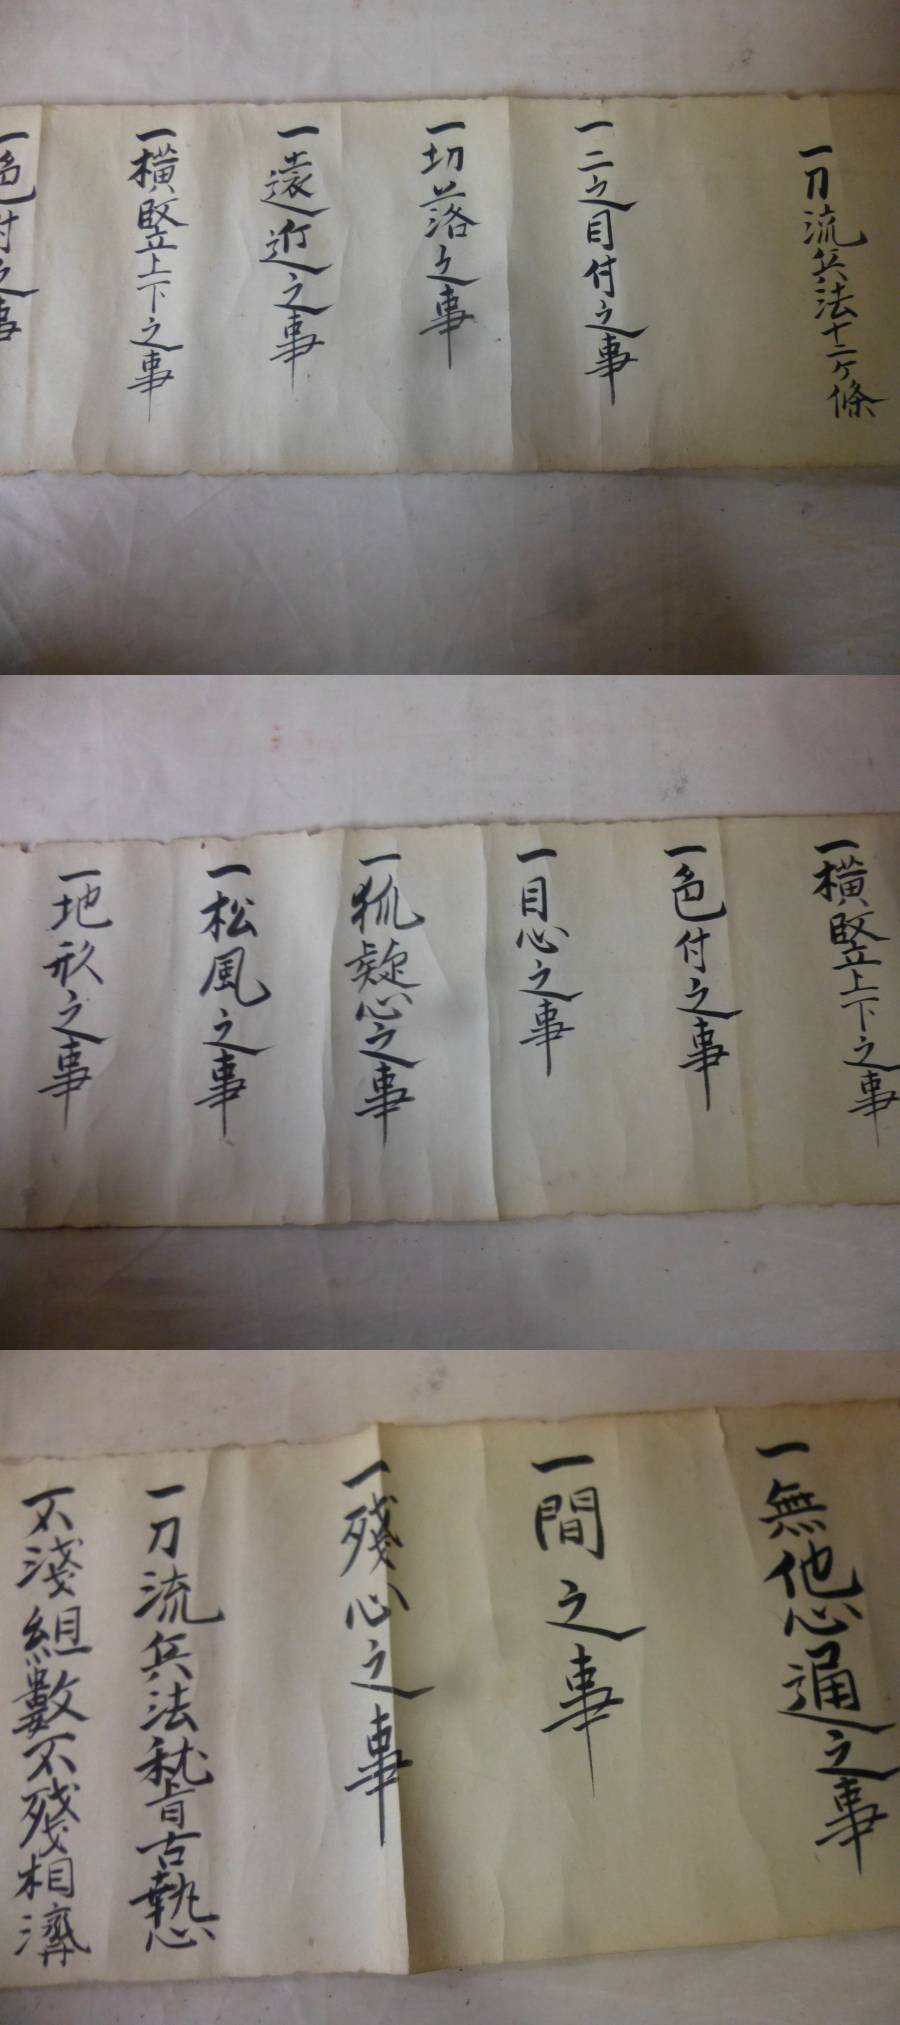 一刀流兵法十二ヶ條
一二之目付之事
一切落之事
一遠近之事
一横竪上下之事
一色付之事
一横竪上下之事
一色付之事
一目心之事
一狐疑心之事
一松風之事
一地形之事
一無他心通之事
一間之事
一残心之事
一刀流兵法稽古執心
不淺組數不残相濟